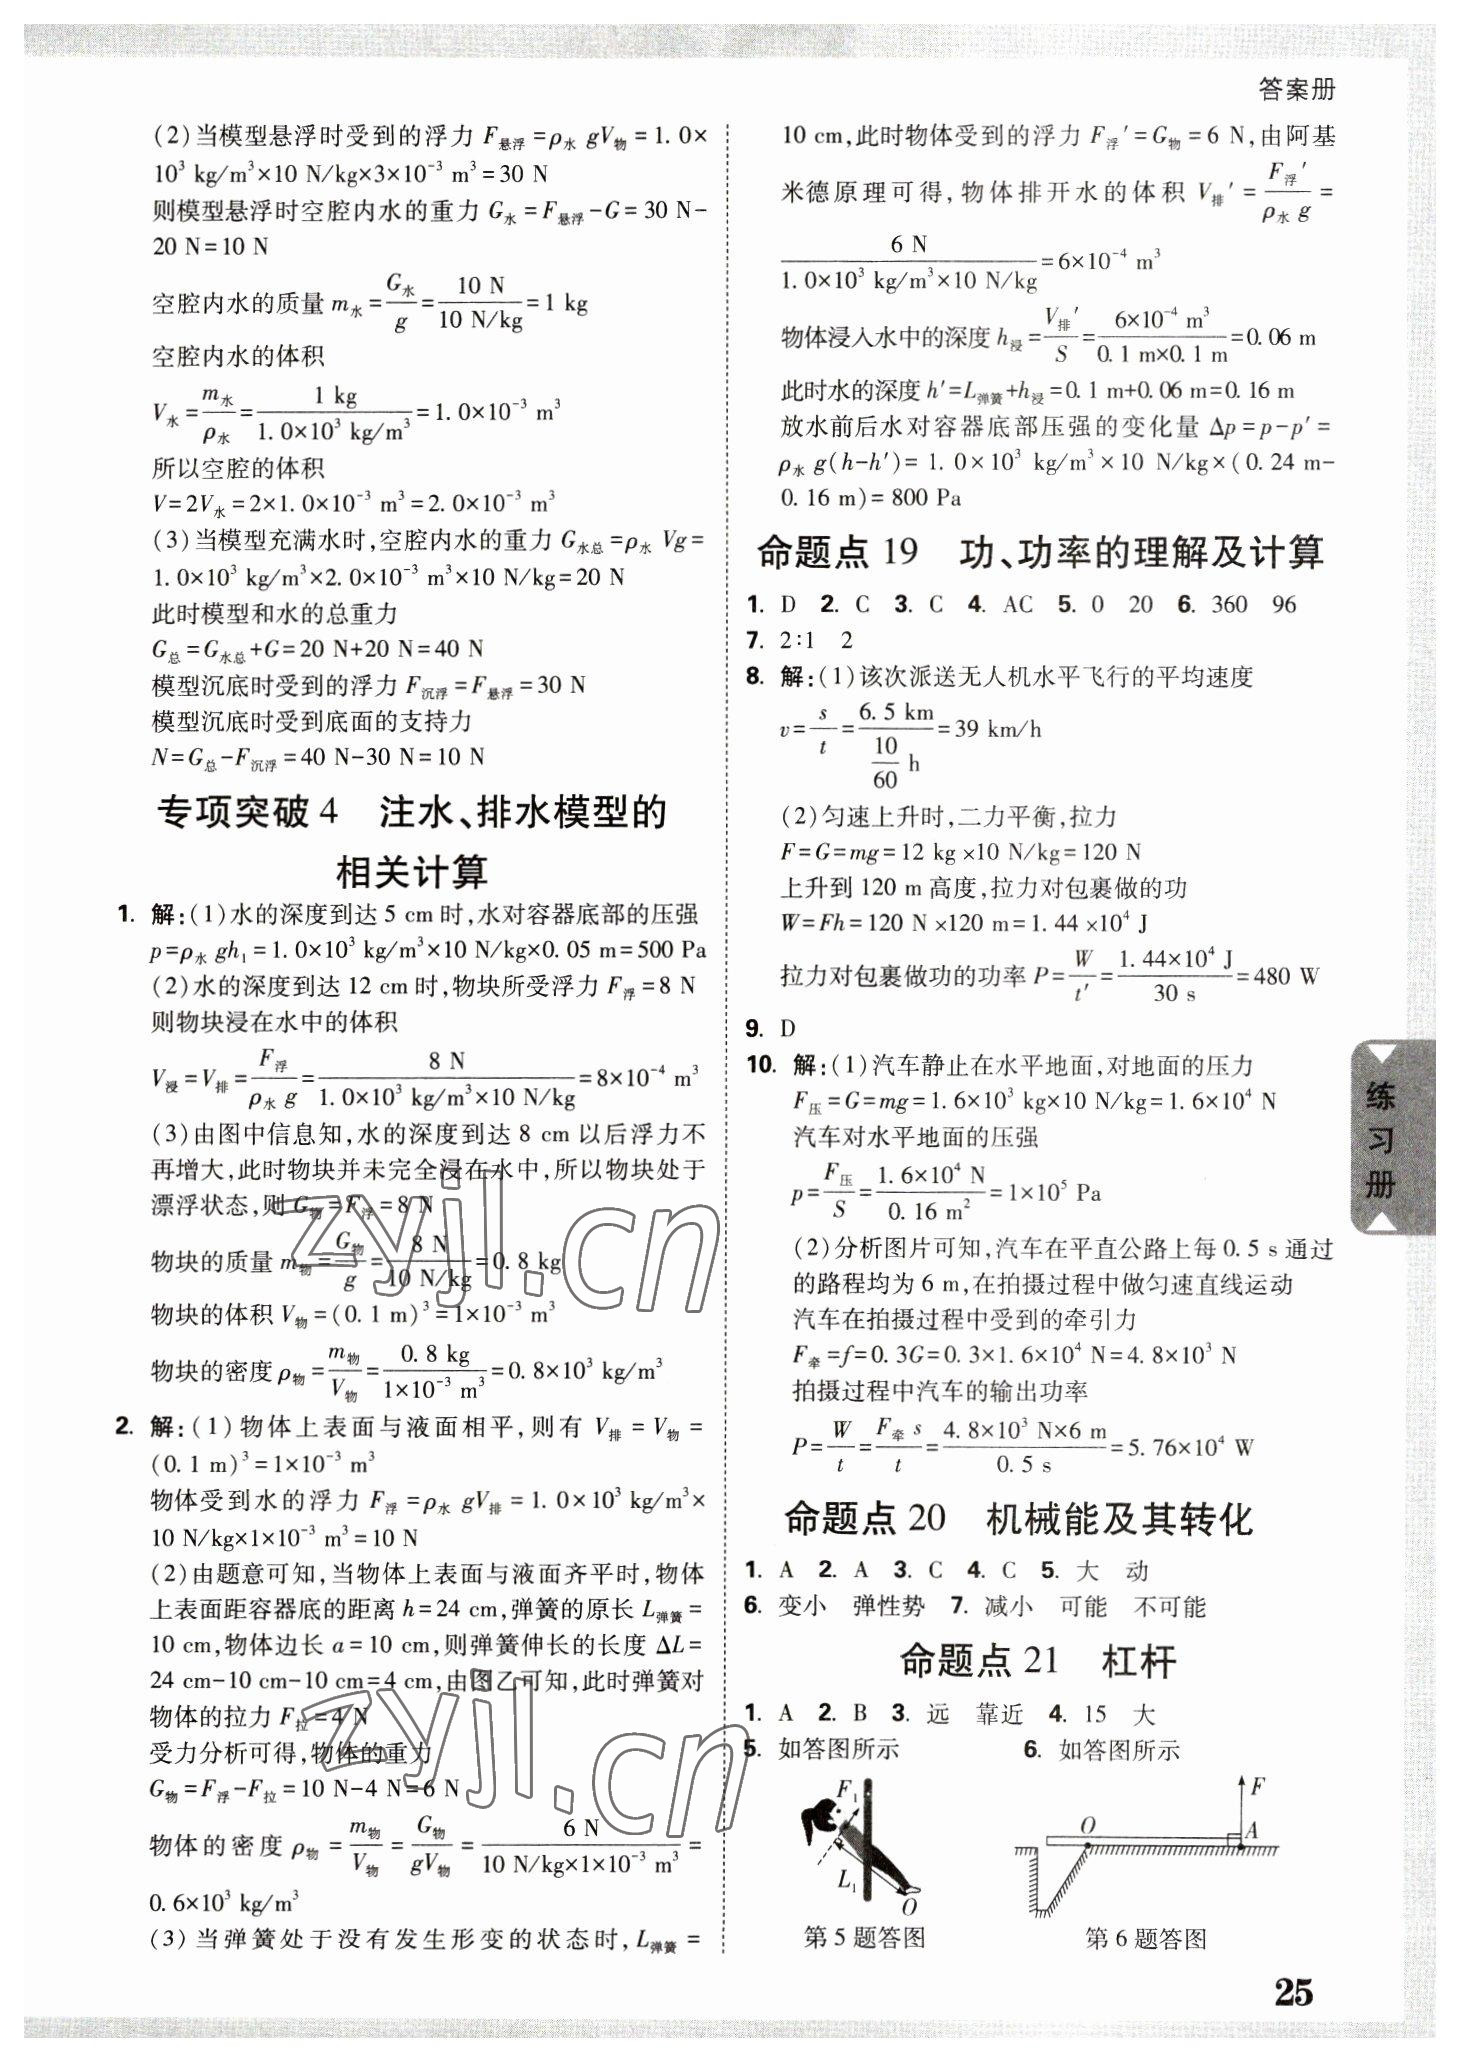 答案册
(2)当模型悬浮时受到的浮力 F悬浮=ρ水 gV物=1.0×
10³ kg/m³×10 N/kg×3×10⁻³ m³=30 N
则模型悬浮时空腔内水的重力 G水=F悬浮-G=30 N-
20 N=10 N
空腔内水的质量 m水=G水/g=10 N/10 N/kg=1 kg
空腔内水的体积
V水=m水/ρ水=1 kg/1.0×10³ kg/m³=1.0×10⁻³ m³
所以空腔的体积
V=2V水=2×1.0×10⁻³ m³=2.0×10⁻³ m³
(3)当模型充满水时,空腔内水的重力 G水总=ρ水 Vg=
1.0×10³ kg/m³×2.0×10⁻³ m³×10 N/kg=20 N
此时模型和水的总重力
G总=G水总+G=20 N+20 N=40 N
模型沉底时受到的浮力 F沉浮=F悬浮=30 N
模型沉底时受到底面的支持力
N=G总-F沉浮=40 N-30 N=10 N
专项突破 4 注水、排水模型的
相关计算
1. 解:(1)水的深度到达 5 cm 时,水对容器底部的压强
p=ρ水 gh₁=1.0×10³ kg/m³×10 N/kg×0.05 m=500 Pa
(2)水的深度到达 12 cm 时,物块所受浮力 F浮=8 N
则物块浸在水中的体积
V浸=V排=F浮/ρ水 g=8 N/1.0×10³ kg/m³×10 N/kg=8×10⁻⁴ m³
(3)由图中信息知,水的深度到达 8 cm 以后浮力不
再增大,此时物块并未完全浸在水中,所以物块处于
漂浮状态,则 G物=F浮=8 N
物块的质量 m物=G物/g=8 N/10 N/kg=0.8 kg
物块的体积 V物=(0.1 m)³=1×10⁻³ m³
物块的密度 ρ物=m物/V物=0.8 kg/1×10⁻³ m³=0.8×10³ kg/m³
2. 解:(1)物体上表面与液面相平,则有 V排=V物=
(0.1 m)³=1×10⁻³ m³
物体受到水的浮力 F浮=ρ水 gV排=1.0×10³ kg/m³×
10 N/kg×1×10⁻³ m³=10 N
(2)由题意可知,当物体上表面与液面齐平时,物体
上表面距容器底的距离 h=24 cm,弹簧的原长 L弹簧=
10 cm,物体边长 a=10 cm,则弹簧伸长的长度 ΔL=
24 cm-10 cm-10 cm=4 cm,由图乙可知,此时弹簧对
物体的拉力 F拉=4 N
受力分析可得,物体的重力
G物=F浮-F拉=10 N-4 N=6 N
物体的密度 ρ物=m物/V物=G物/gV物=6 N/10 N/kg×1×10⁻³ m³=
0.6×10³ kg/m³
(3)当弹簧处于没有发生形变的状态时,L弹簧=
10 cm,此时物体受到的浮力 F浮′=G物=6 N,由阿基
米德原理可得,物体排开水的体积 V排′=F浮′/ρ水 g=
6 N/1.0×10³ kg/m³×10 N/kg=6×10⁻⁴ m³
物体浸入水中的深度 h浸=V排′/S=6×10⁻⁴ m³/0.1 m×0.1 m=0.06 m
此时水的深度 h′=L弹簧+h浸=0.1 m+0.06 m=0.16 m
放水前后水对容器底部压强的变化量 Δp=p-p′=
ρ水 g(h-h′)=1.0×10³ kg/m³×10 N/kg×(0.24 m-
0.16 m)=800 Pa
命题点 19 功、功率的理解及计算
1. D 2. C 3. C 4. AC 5. 0 20 6. 360 96
7. 2∶1 2
8. 解:(1)该次派送无人机水平飞行的平均速度
v=s/t=6.5 km/(10/60 h)=39 km/h
(2)匀速上升时,二力平衡,拉力
F=G=mg=12 kg×10 N/kg=120 N
上升到 120 m 高度,拉力对包裹做的功
W=Fh=120 N×120 m=1.44×10⁴ J
拉力对包裹做功的功率 P=W/t′=1.44×10⁴ J/30 s=480 W
9. D
10. 解:(1)汽车静止在水平地面,对地面的压力
F压=G=mg=1.6×10³ kg×10 N/kg=1.6×10⁴ N
汽车对水平地面的压强
p=F压/S=1.6×10⁴ N/0.16 m²=1×10⁵ Pa
(2)分析图片可知,汽车在平直公路上每 0.5 s 通过
的路程均为 6 m,在拍摄过程中做匀速直线运动
汽车在拍摄过程中受到的牵引力
F牵=f=0.3G=0.3×1.6×10⁴ N=4.8×10³ N
拍摄过程中汽车的输出功率
P=W/t=F牵 s/t=4.8×10³ N×6 m/0.5 s=5.76×10⁴ W
命题点 20 机械能及其转化
1. A 2. A 3. C 4. C 5. 大 动
6. 变小 弹性势 7. 减小 可能 不可能
命题点 21 杠杆
1. A 2. B 3. 远 靠近 4. 15 大
5. 如答图所示 6. 如答图所示
F₁
L₁
O
第 5 题答图
F
O
A
第 6 题答图
练习册
25
zyjl.cn
zyjl.cn